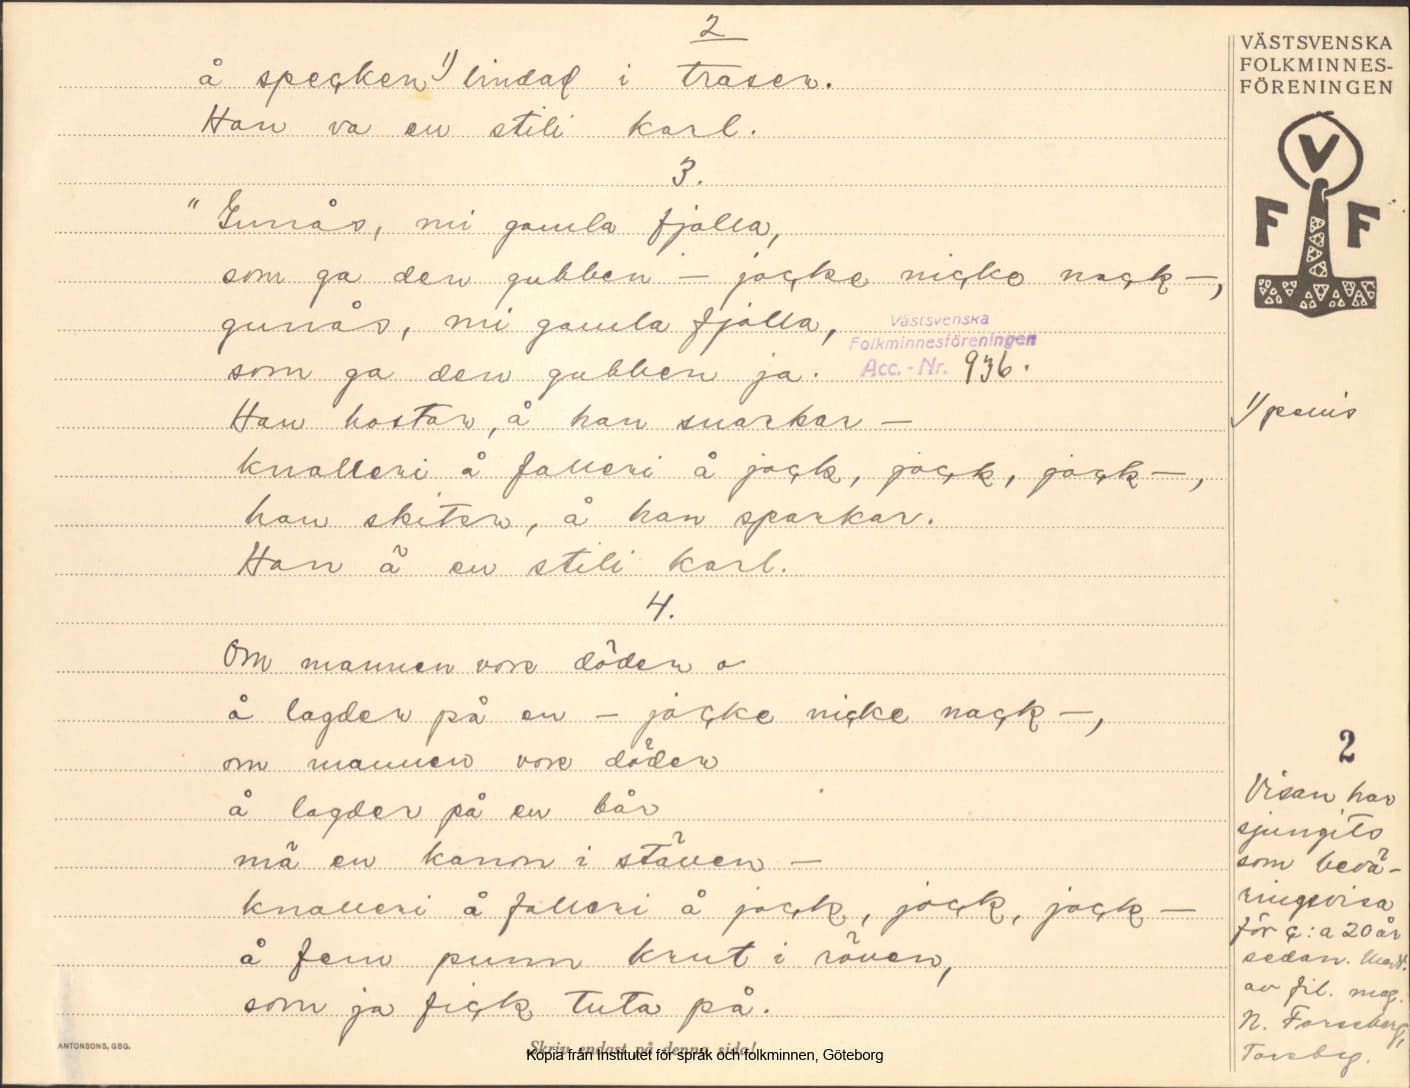 2
å specken 1) lindad i trasen.
Han va en stili karl.
3.
"Gunås, mi gamla fjälla,
som ga den gubben – jacke nicke nack –,
gunås, mi gamla fjälla,
som ga den gubben ja.
Han hostar, å han snarkar –
knalleri å falleri å jack, jack, jack –,
han skiter, å han sparkar.
Han ä en stili karl.
4.
Om mannen vore döder
å lagder på en – jacke nicke nack –,
om mannen vore döder
å lagder på en bår
mä en kanon i stäven –
knalleri å falleri å jack, jack, jack –
å fem punn krut i röven,
som ja fick tuta på.
VÄSTSVENSKA
FOLKMINNES-
FÖRENINGEN
V
F F
Västsvenska
Folkminnesföreningen
Acc.-Nr. 936.
1) penis
2
Visan har
sjungits
som bevä-
ringsvisa
för c:a 20 år
sedan.
av fil. mag.
N. Forssberg,
Torsby.
ANTONSONS, GBG.
Skriv endast på denna sida!
Kopia från Institutet för språk och folkminnen, Göteborg